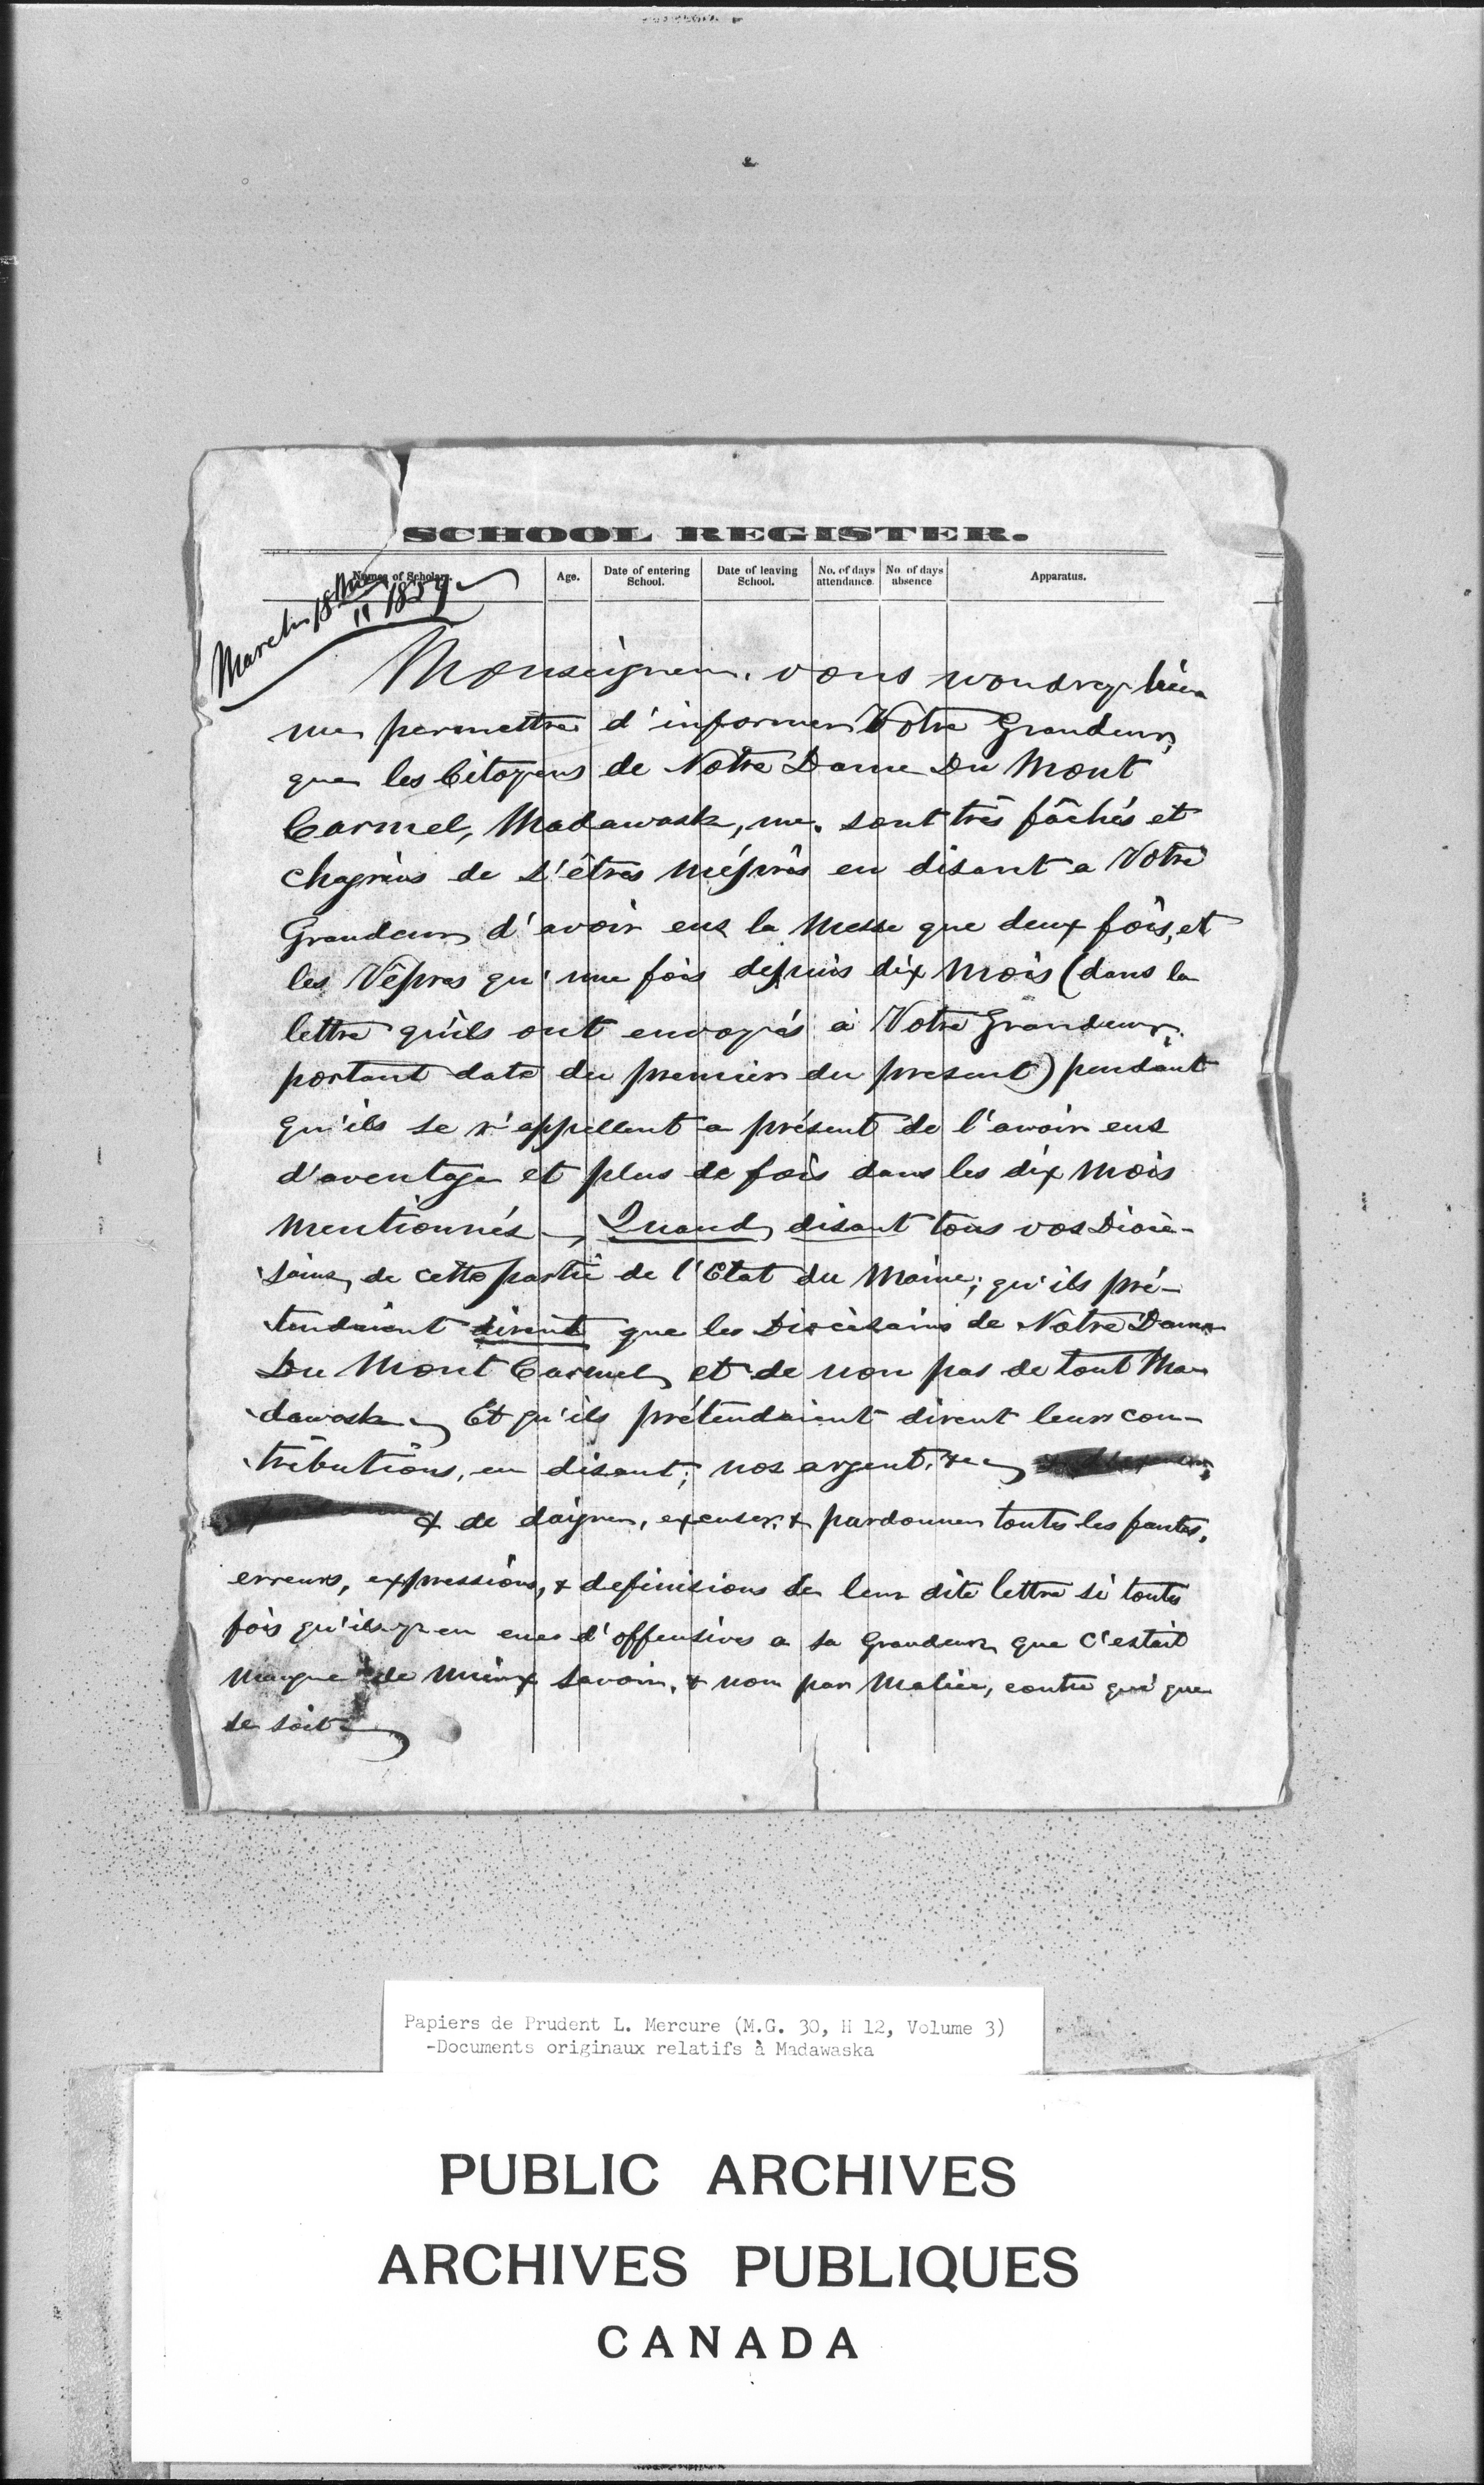 SCHOOL REGISTER.
Names of Scholars. Age. Date of entering School. Date of leaving School. No. of days attendance. No. of days absence Apparatus.
March 18me
" 1859
Monseigneur. vous voudrez bien
me permettre d'informer Votre Grandeur,
que les Citoyens de Notre Dame Du Mont
Carmel, Madawask, me. sont très fâchés et
chagrins de s'êtres mépris en disant a Votre
Grandeur d'avoir eus la Messe que deux fois, et
les Vêpres qu'une fois depuis dix Mois (dans la
lettre qu'ils ont envoyés à Votre Grandeur,
portant date du premier du present) pendant
qu'ils se r'appellent a présent de l'avoir eus
d'aventage et plus de fois dans les dix Mois
Mentionnés, Quand disant tous vos Diocè-
sains, de cette partie de l'Etat du Maine; qu'ils pré-
tendaient dirent que les Diocèsains de Notre Dame
Du Mont Carmel et de non pas de tout Ma-
dawask Et qu'ils prétendaient dirent leurs con-
tributions, en disant; nos argent. &c
& de daigner, excuser, & pardonner toutes les fautes,
erreurs, expressions, & definisions de leur dite lettre si toutes
fois qu'ils y en eues d'offensives a sa Grandeur que c'estait
Manque de Mieux Savoir, & non par Malice, contre qui que
se soit
Papiers de Prudent L. Mercure (M.G. 30, H 12, Volume 3)
-Documents originaux relatifs à Madawaska
PUBLIC ARCHIVES
ARCHIVES PUBLIQUES
CANADA